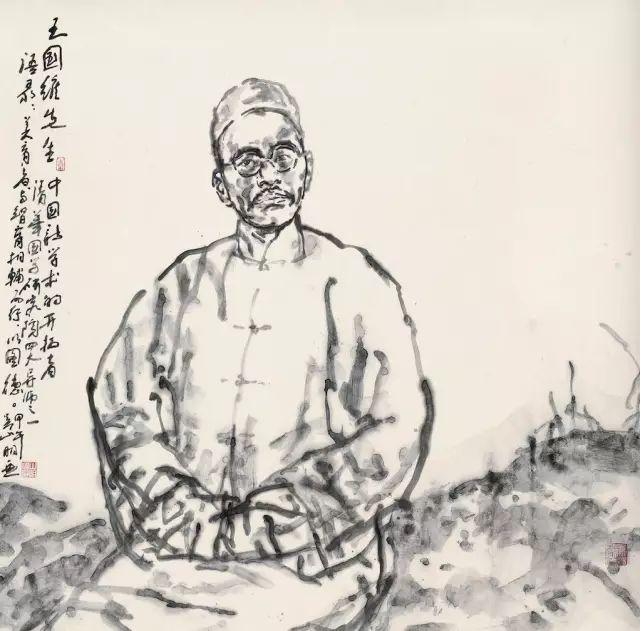 王國維先生 中国学术的开拓者
清華国学研究院四大导师之一
语录：美育者与智育相辅而行，以图德。甲午